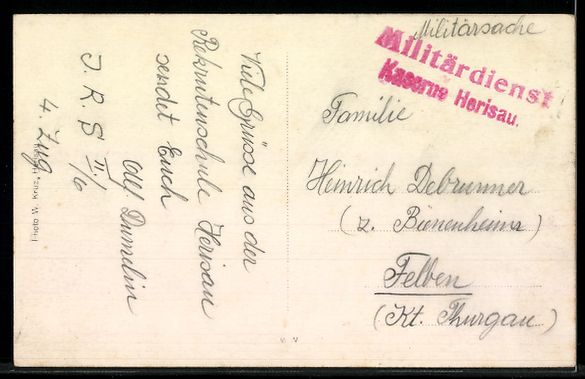 Militärsache
Militärdienst
Kaserne Herisau.
Familie
Heinrich Debrunner
(z. Bienenheim)
Felben
(Kt. Thurgau)
Viele Grüsse aus der
Rekrutenschule Herisau
sendet Euch
Alf.
I. R. S II./6
4. Zug.
Photo W.